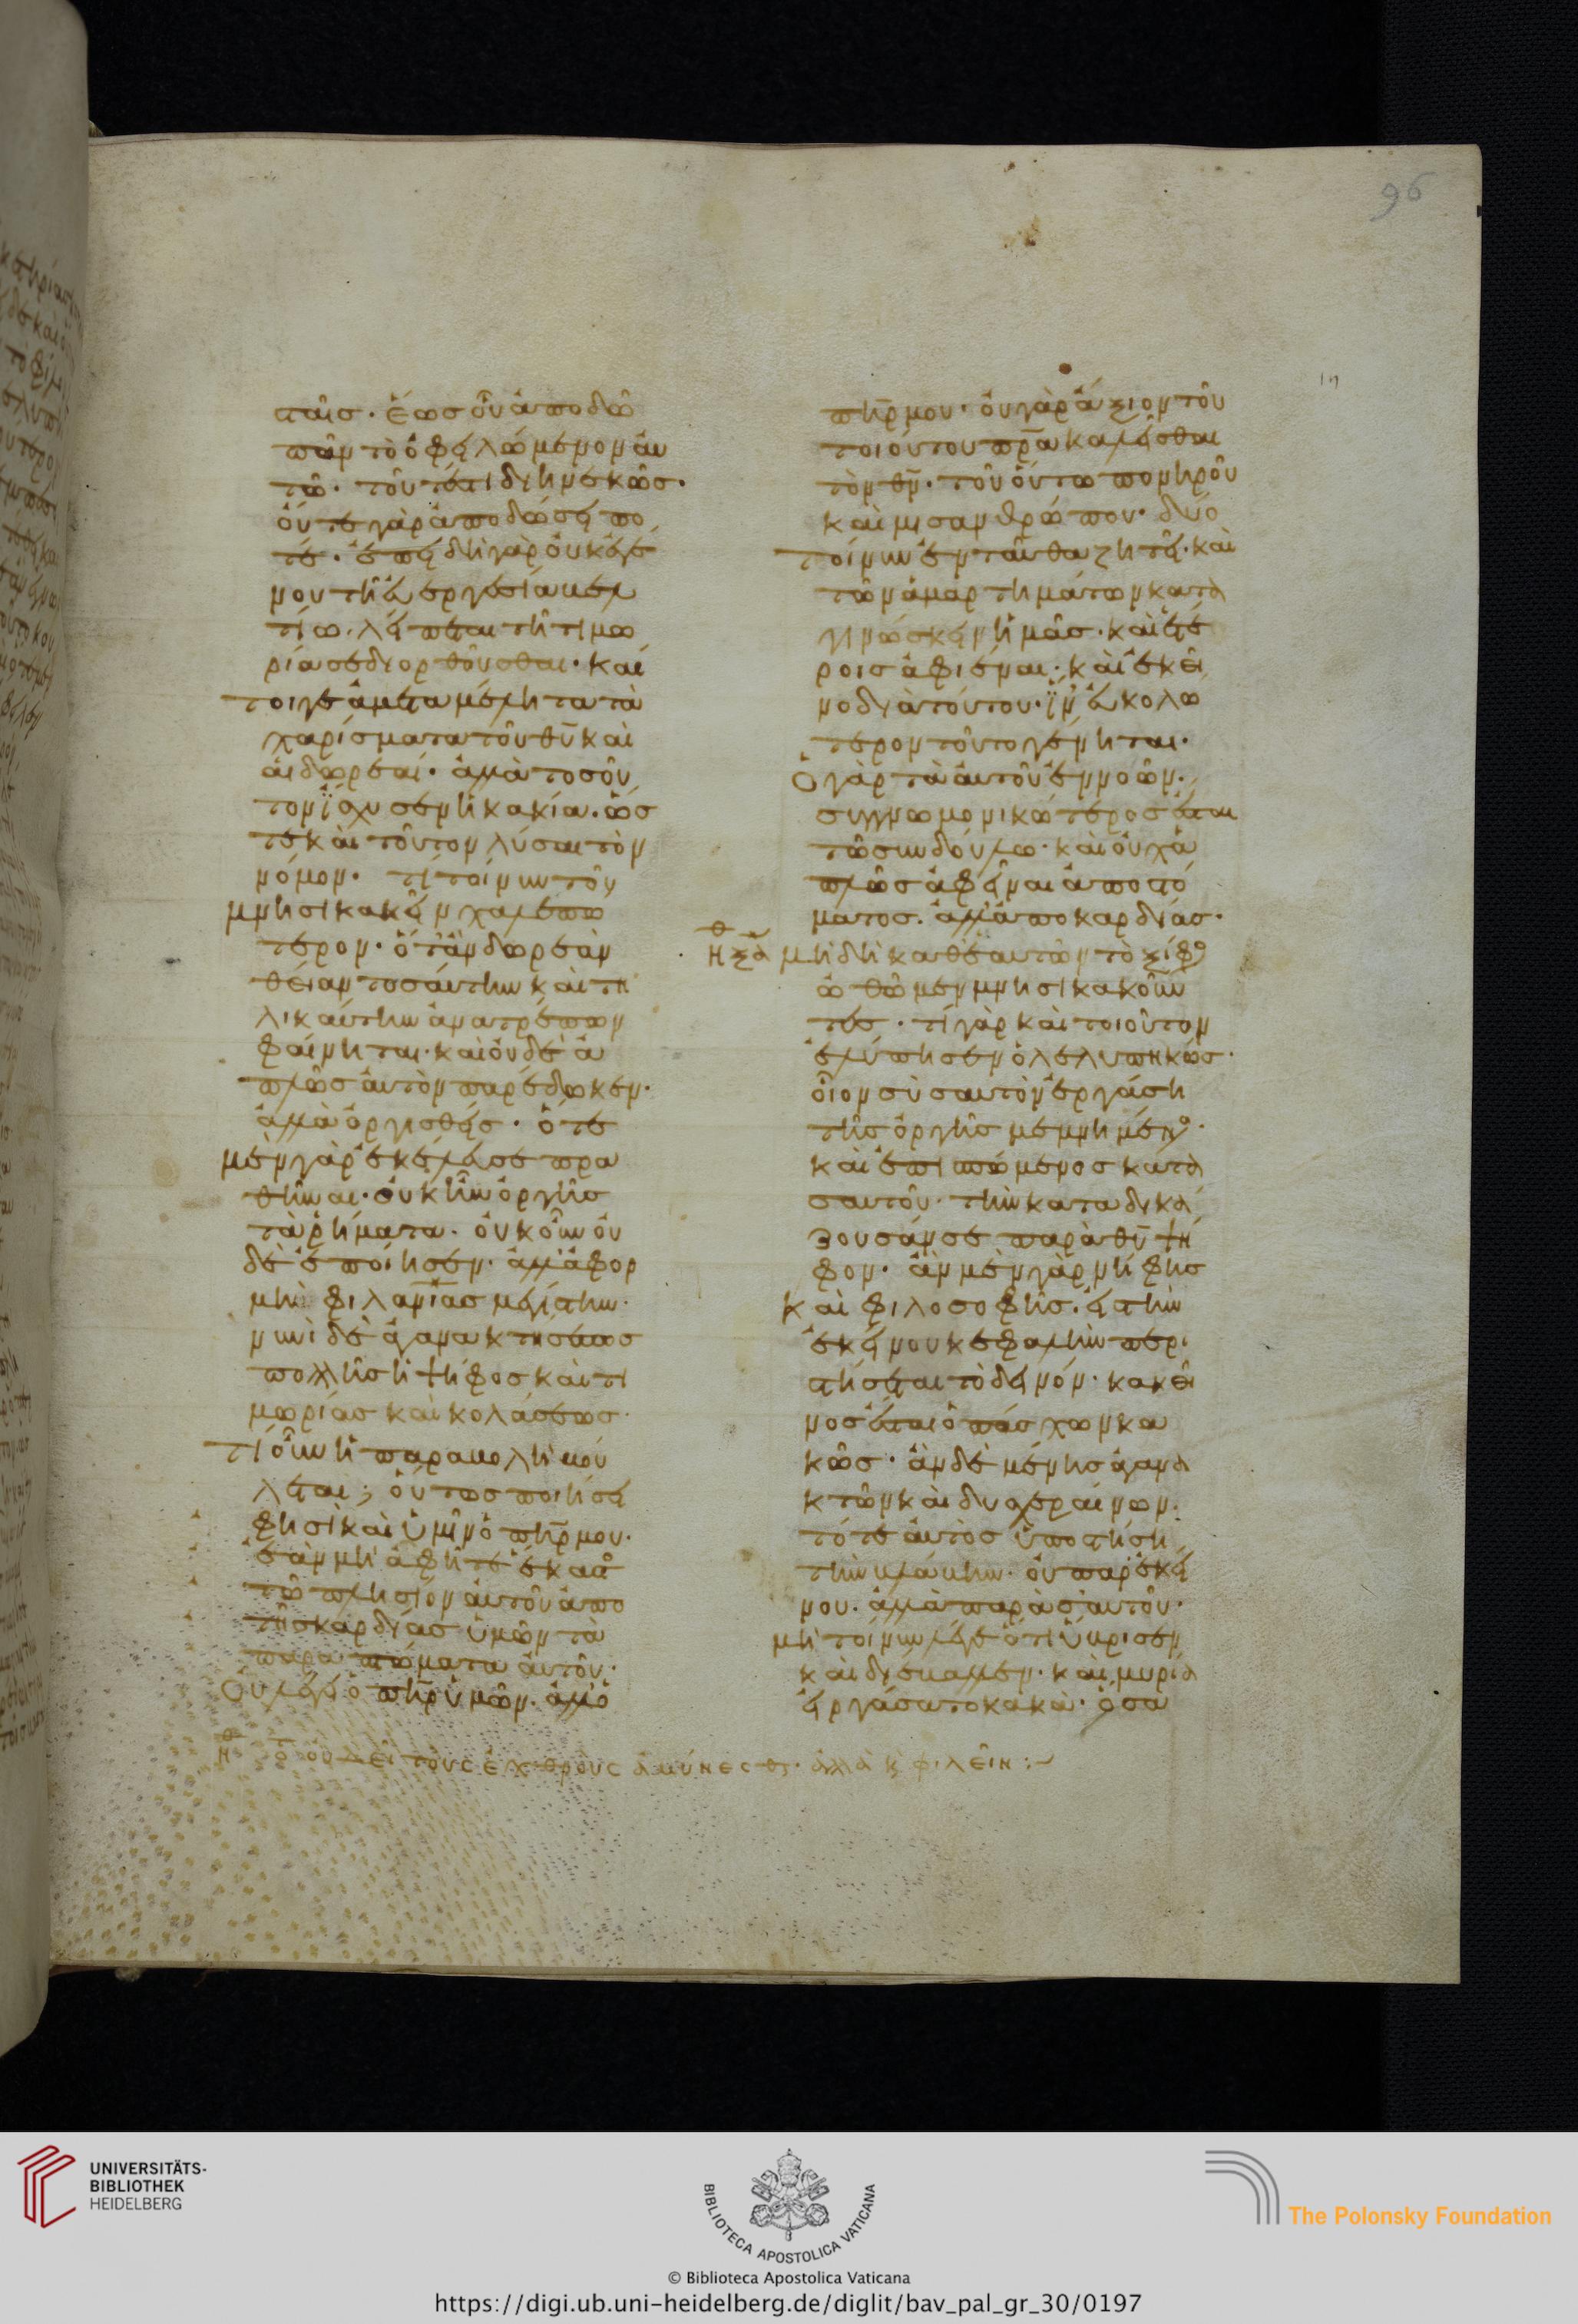 96
ταῖς. ἕως οὗ ἀποδῶ
πᾶν τὸ ὀφειλώμενον αὐ
τῶ. τοῦτέστι διηνεκῶς.
οὔτε γὰρ ἀποδώσει πο
τέ. ἐπειδὴ γὰρ οὐκ ἐγέ
νου τῆ εὐεργεσία βελ
τίω. λείπεται τῆ τιμω
ρία σε διορθοῦσθαι. καί
τοιγε ἀμεταμέλητα τὰ
χαρίσματα τοῦ θυ καὶ
αἱ δωρεαί. ἀλλὰ τοσοῦ
τον ἴσχυσεν ἡ κακία. ὥσ
τε καὶ τοῦτον λύσαι τὸν
νόμον. τί τοίνυν τοῦ
μνησικακεῖν χαλεπώ
τερον. ὅτ' ἂν δωρεὰν
θείαν τοσαύτην καὶ τη
λικαύτην ἀνατρέπων
φαίνηται. καὶ οὐδὲ ἁ
πλῶς αὐτὸν παρέδωκεν.
ἀλλὰ ὀργισθείς. ὅτε
μὲν γὰρ ἐκέλευσε πρα
θῆναι. οὐκ ἦν ὀργῆς
τὰ ῥήματα. οὐκοῦν οὐ
δὲ ἐποίησεν. ἀλλ' ἀφορ
μὴ φιλανιας μεγίστη.
νυνὶ δὲ ἀγανακτήσεως
πολλῆς ἡ ψῆφος καὶ τι
μωρίας καὶ κολάσεως.
τί οὖν ἡ παραβολὴ βού
λεται; οὕτως ποιήσει
φησὶ καὶ ὑμῖν ὁ πηρ μου.
ἐὰν μὴ ἀφῆτε ἕκαστος
τῶ πλησίον αὐτοῦ ἀπὸ
τῆς καρδίας ὑμῶν τὰ
παραπτώματα αὐτοῦ.
Οὐ λέγει ὁ πηρ ὑμῶν. ἀλλ' ὁ
πηρ μου. οὐ γὰρ ἄξιον τοῦ
τοιούτου πρα καλεῖσθαι
τὸν θν. τοῦ οὕτω πονηροῦ
καὶ μισανθρώπου. δύο
τοίνυν ἐνταῦθα ζητεῖ. καὶ
τῶν ἁμαρτημάτων κατα
γινώσκειν ἡμᾶς. καὶ ἑτέ
ροις ἀφιέναι. καὶ ἐκεῖ
νο διὰ τοῦτου. ἵν' εὐκολώ
τερον τοῦτο γένηται.
Ὁ γὰρ τὰ αὐτοῦ ἐννοῶν.
συγγνωμονικώτερος ἔσται
τῶ συνδούλω. καὶ οὐχ ἁ
πλῶς ἀφεῖναι ἀπὸ στό
ματος. ἀλλ' ἀπὸ καρδίας.
μὴ δὴ καθ' ἑαυτῶν τὸ ξίφος
ὠθῶμεν μνησικακοῦν
τες. τί γὰρ καὶ τοιοῦτον
ἐλύπησεν ὁ λελυπηκώς.
οἷον σὺ σαυτὸν ἐργάση
τῆς ὀργῆς μεμνημένος.
καὶ ἐπισπώμενος κατὰ
σαυτοῦ. τὴν καταδικά
ζουσάν σε παρὰ θυ ψῆ
φον. ἂν μὲν γὰρ νήφης
καὶ φιλοσοφῆς. εἰς τὴν
ἐκείνου κεφαλὴν περι
στήσεται τὸ δεινόν. κακεῖ
νος ἔσται ὁ πάσχων κα
κῶς. ἂν δὲ μένης ἀγανα
κτῶν καὶ δυσχεραίνων.
τότε αὐτὸς ὑποστήση
τὴν βλάβην. οὐ παρ' ἐκεί
νου. ἀλλὰ παρὰ σαυτοῦ.
μὴ τοίνυν λέγε ὅτι ὕβρισεν
καὶ διέβαλλεν. καὶ μυρία
εἰργάσατο κακά. ὅσα
ὅτι οὐ δεῖ τοὺς ἐχθροὺς ἀμύνεσθαι. ἀλλὰ καὶ φιλεῖν :~
UNIVERSITÄTS-
BIBLIOTHEK
HEIDELBERG
BIBLIOTECA APOSTOLICA VATICANA
The Polonsky Foundation
© Biblioteca Apostolica Vaticana
https://digi.ub.uni-heidelberg.de/diglit/bav_pal_gr_30/0197